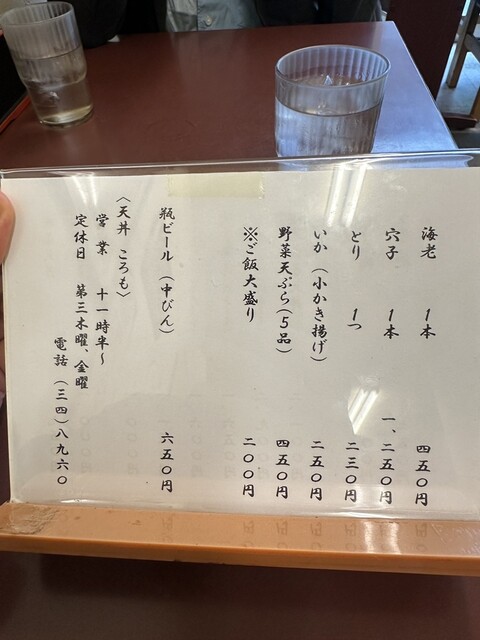 海老 1本 四五〇円
穴子 1本 一、二五〇円
とり 1つ 二三〇円
いか(小かき揚げ) 二五〇円
野菜天ぷら(5品) 四五〇円
※ご飯大盛り 二〇〇円
瓶ビール (中びん) 六五〇円
〈天丼 ころも〉
営業 十一時半~
定休日 第三木曜、金曜
電話 (三四)八九六〇